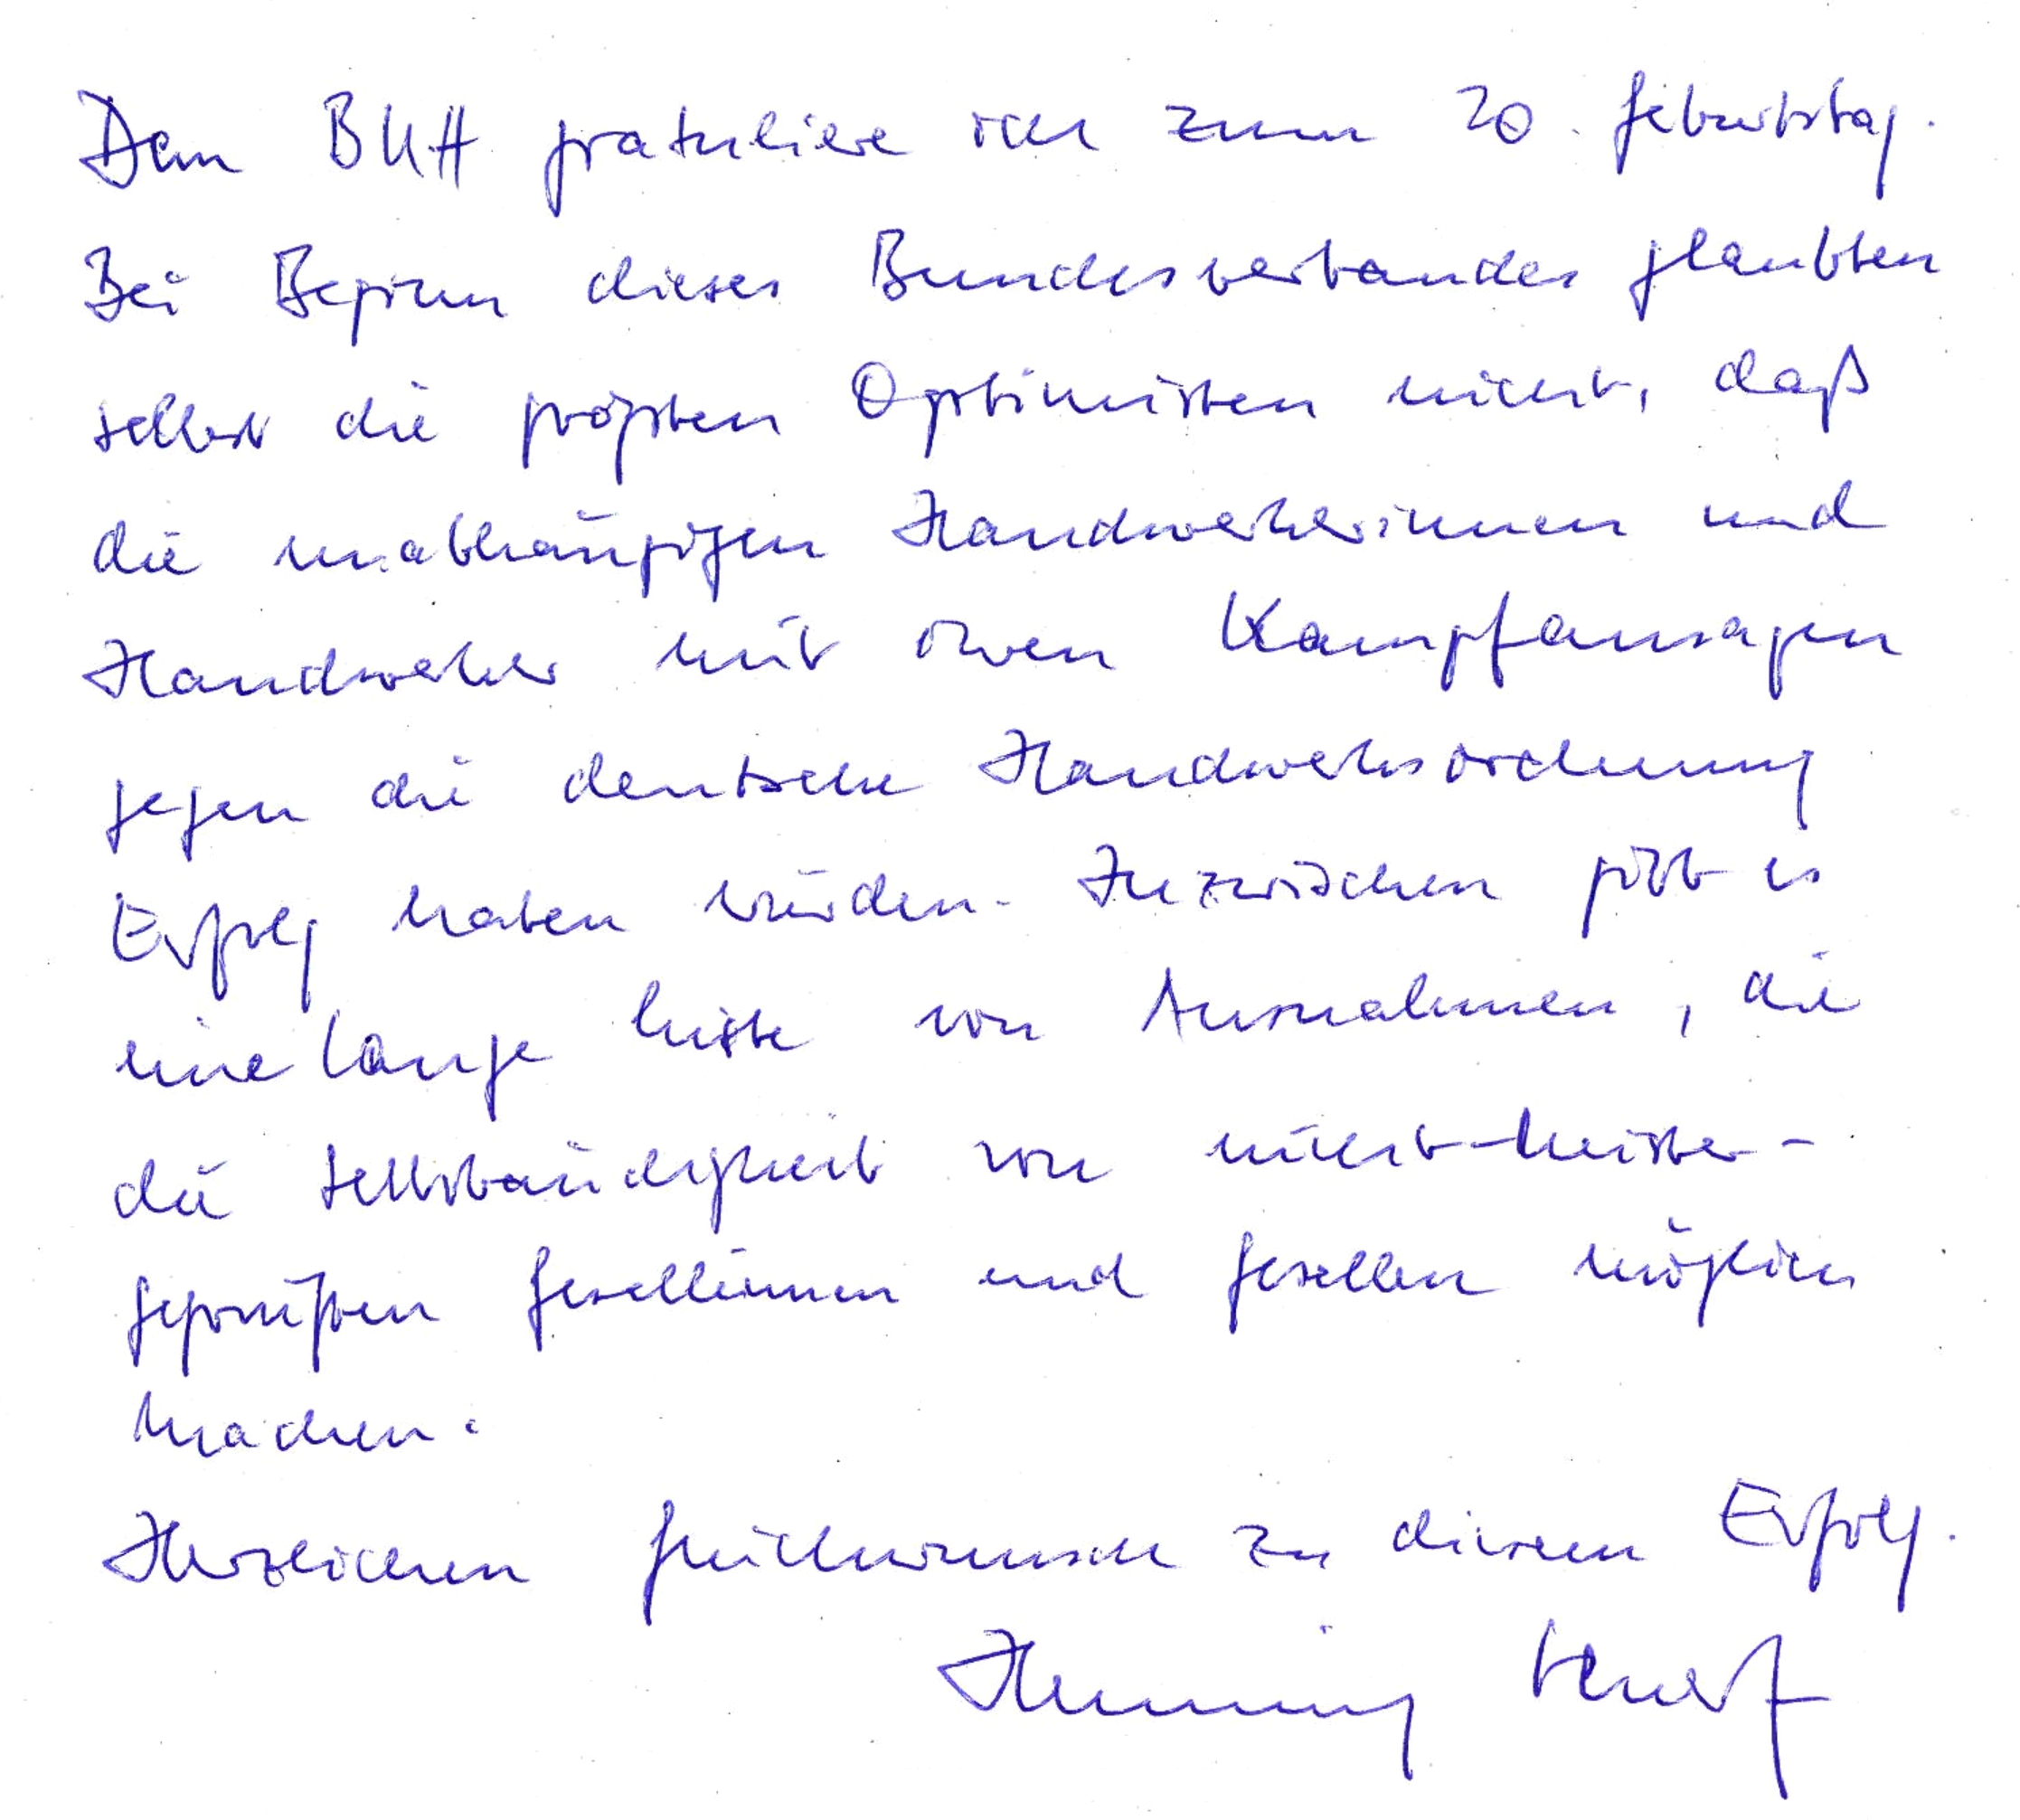 Dem BUH gratuliere ich zum 20. Geburtstag.
Bei Beginn dieses Bundesverbandes glaubten
selbst die größten Optimisten nicht, daß
die unabhängigen Handwerkerinnen und
Handwerker mit ihren Kampfansagen
gegen die deutsche Handwerksordnung
Erfolg haben würden. Inzwischen gibt es
eine lange Liste von Ausnahmen, die
die Selbständigkeit von nicht-meister-
geprüften Gesellinnen und Gesellen möglich
machen.
Herzlichen Glückwunsch zu diesem Erfolg.
Henning Scherf